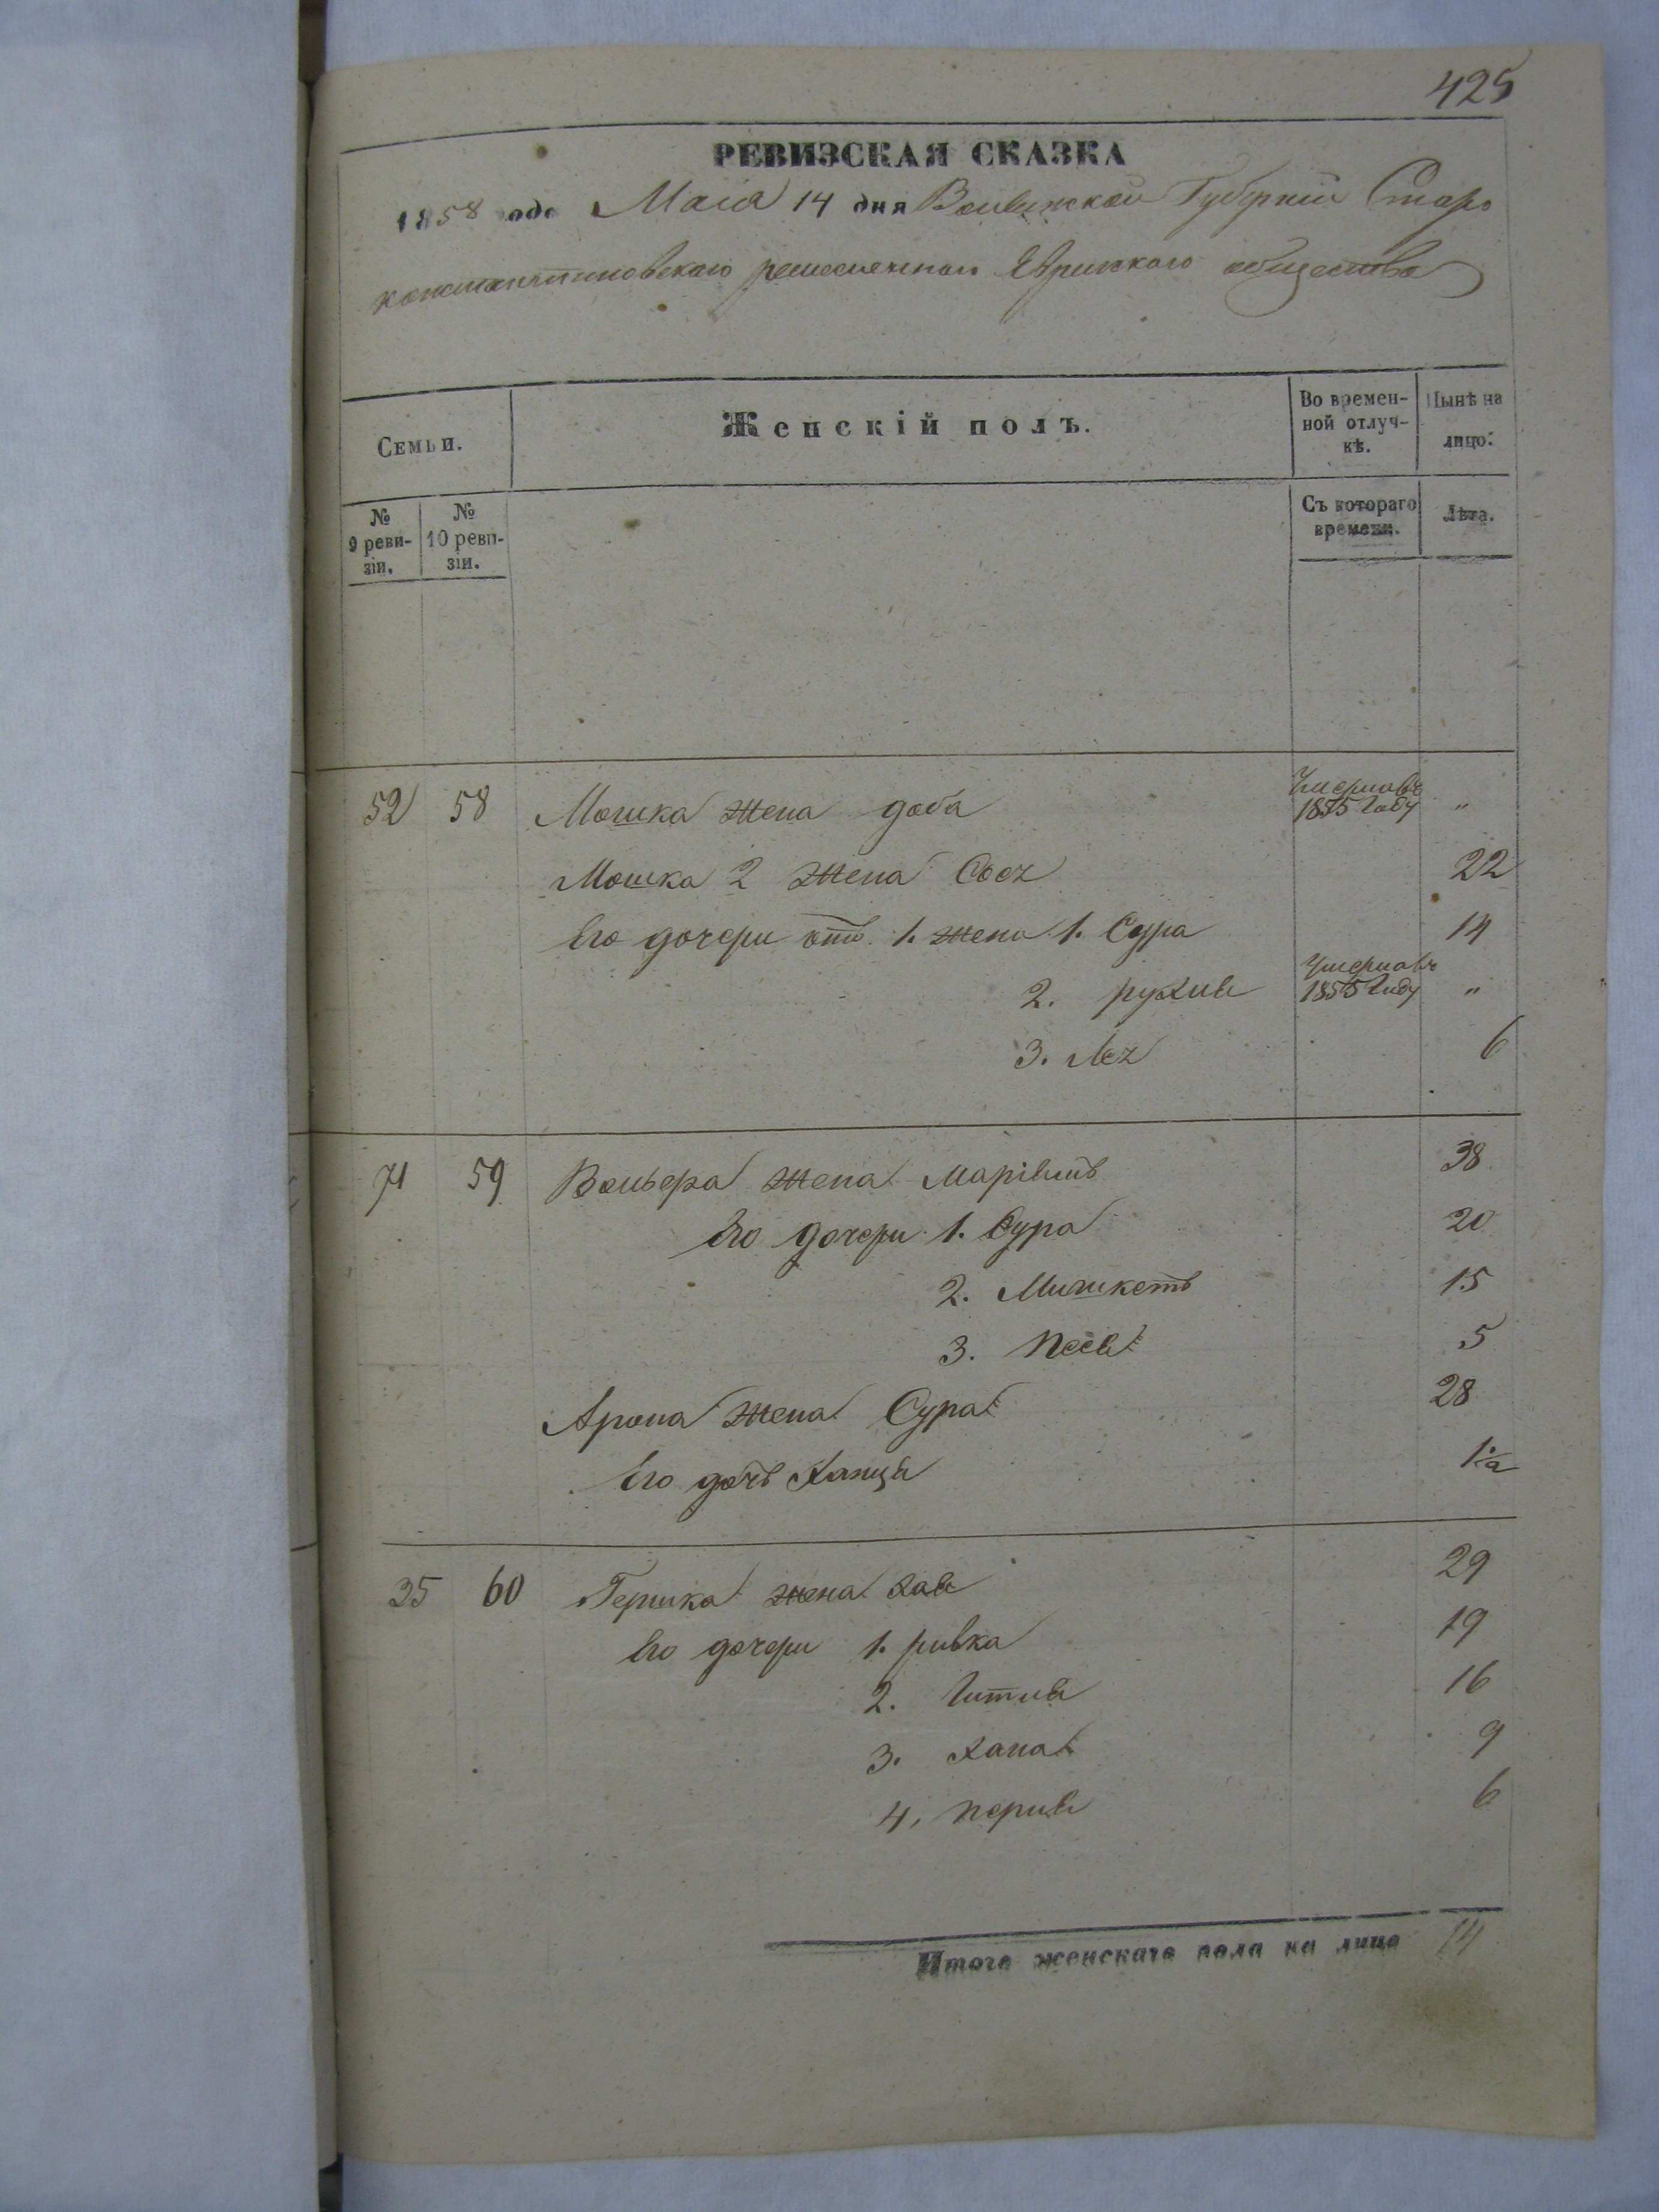 425
РЕВИЗСКАЯ СКАЗКА
1858 года Маія 14 дня Волынской Губерніи Старо
константиновскаго ремесленнаго Еврейскаго общества
Семьи.
Женскій полъ.
Во времен-
ной отлуч-
кѣ.
Нынѣ на
лицо.
№
9 реви-
зіи.
№
10 реви-
зіи.
Съ котораго
времени.
Лѣта.
52 58 Мошка жена доба Умерла въ 1855 Году "
Мошка 2 жена 22
Его дочери отъ 1. жена 1. Сура 14
2. рухля Умерла въ 1855 Году "
3. Лея 6
71 59 жена 38
Его дочери 1. Сура 20
2. 15
3. Песя 5
Арона жена Сура 28
Его дочь Ханця
35 60 Гершка жена Хая 29
Его дочери 1. ривка 19
2. Гитля 16
3. Хана 9
4. перля 6
Итого женскаго пола на лицо 14